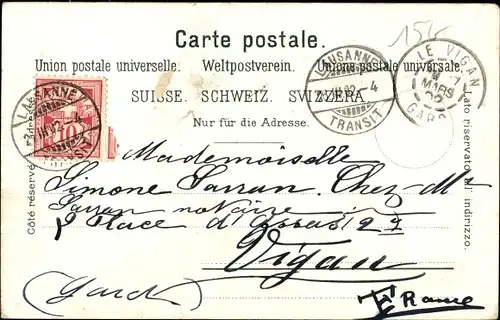 Carte postale.
Union postale universelle. Weltpostverein. Unione postale universale.
SUISSE. SCHWEIZ. SVIZZERA.
Nur für die Adresse.
Côté réservé à l'adresse.
Lato riservato all' indirizzo.
LAUSANNE
III 02 - 4
TRANSIT
10
LAUSANNE
III 02 - 4
TRANSIT
LE VIGAN
MARS
02
GARD
Mademoiselle
Simone Sarran. Chez M
Sarran notaire
Place d'assas 27
Vigan
(Gard)
France